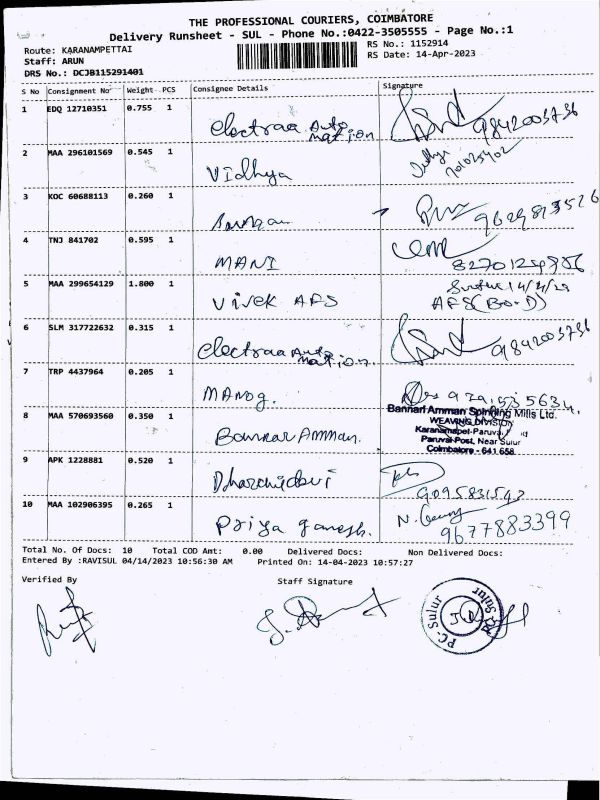 THE PROFESSIONAL COURIERS, COIMBATORE
Delivery Runsheet - SUL - Phone No.:0422-3505555 - Page No.:1
Route: KARANAMPETTAI
RS No.: 1152914
Staff: ARUN
RS Date: 14-Apr-2023
DRS No.: DCJB115291401
S No Consignment No Weight PCS Consignee Details Signature
1 EDQ 12710351 0.755 1 electraa Automation 9842003736
2 MAA 296101569 0.545 1 Vidhya
3 KOC 60688113 0.260 1
4 TNJ 841702 0.595 1 MANI
5 MAA 299654129 1.800 1 Vivek AFS
6 SLM 317722632 0.315 1 electraa Automation. 9842003736
7 TRP 4437964 0.205 1 MANOG.
8 MAA 570693560 0.350 1 Bannar Amman.
Bannari Amman Spinning Mills Ltd.
WEAVING DIVISION
Karanampet-Paruvai
Paruvai-Post, Near Sulur
Coimbatore - 641 658.
9 APK 1228881 0.520 1 Dharanidevi
10 MAA 102906395 0.265 1 Priya ganesh. 9677883399
Total No. Of Docs: 10 Total COD Amt: 0.00 Delivered Docs: Non Delivered Docs:
Entered By :RAVISUL 04/14/2023 10:56:30 AM Printed On: 14-04-2023 10:57:27
Verified By Staff Signature
PC. Sulur